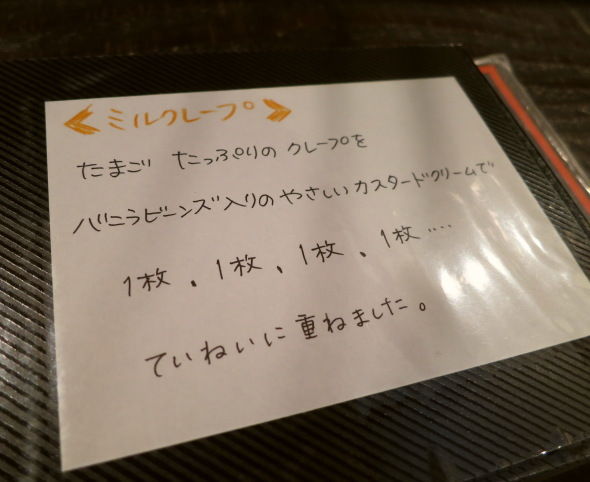 ≪ミルクレープ≫
たまご たっぷりの クレープを
バニラビーンズ入りの やさしい カスタードクリームで
1枚、1枚、1枚、1枚‥‥
ていねいに重ねました。